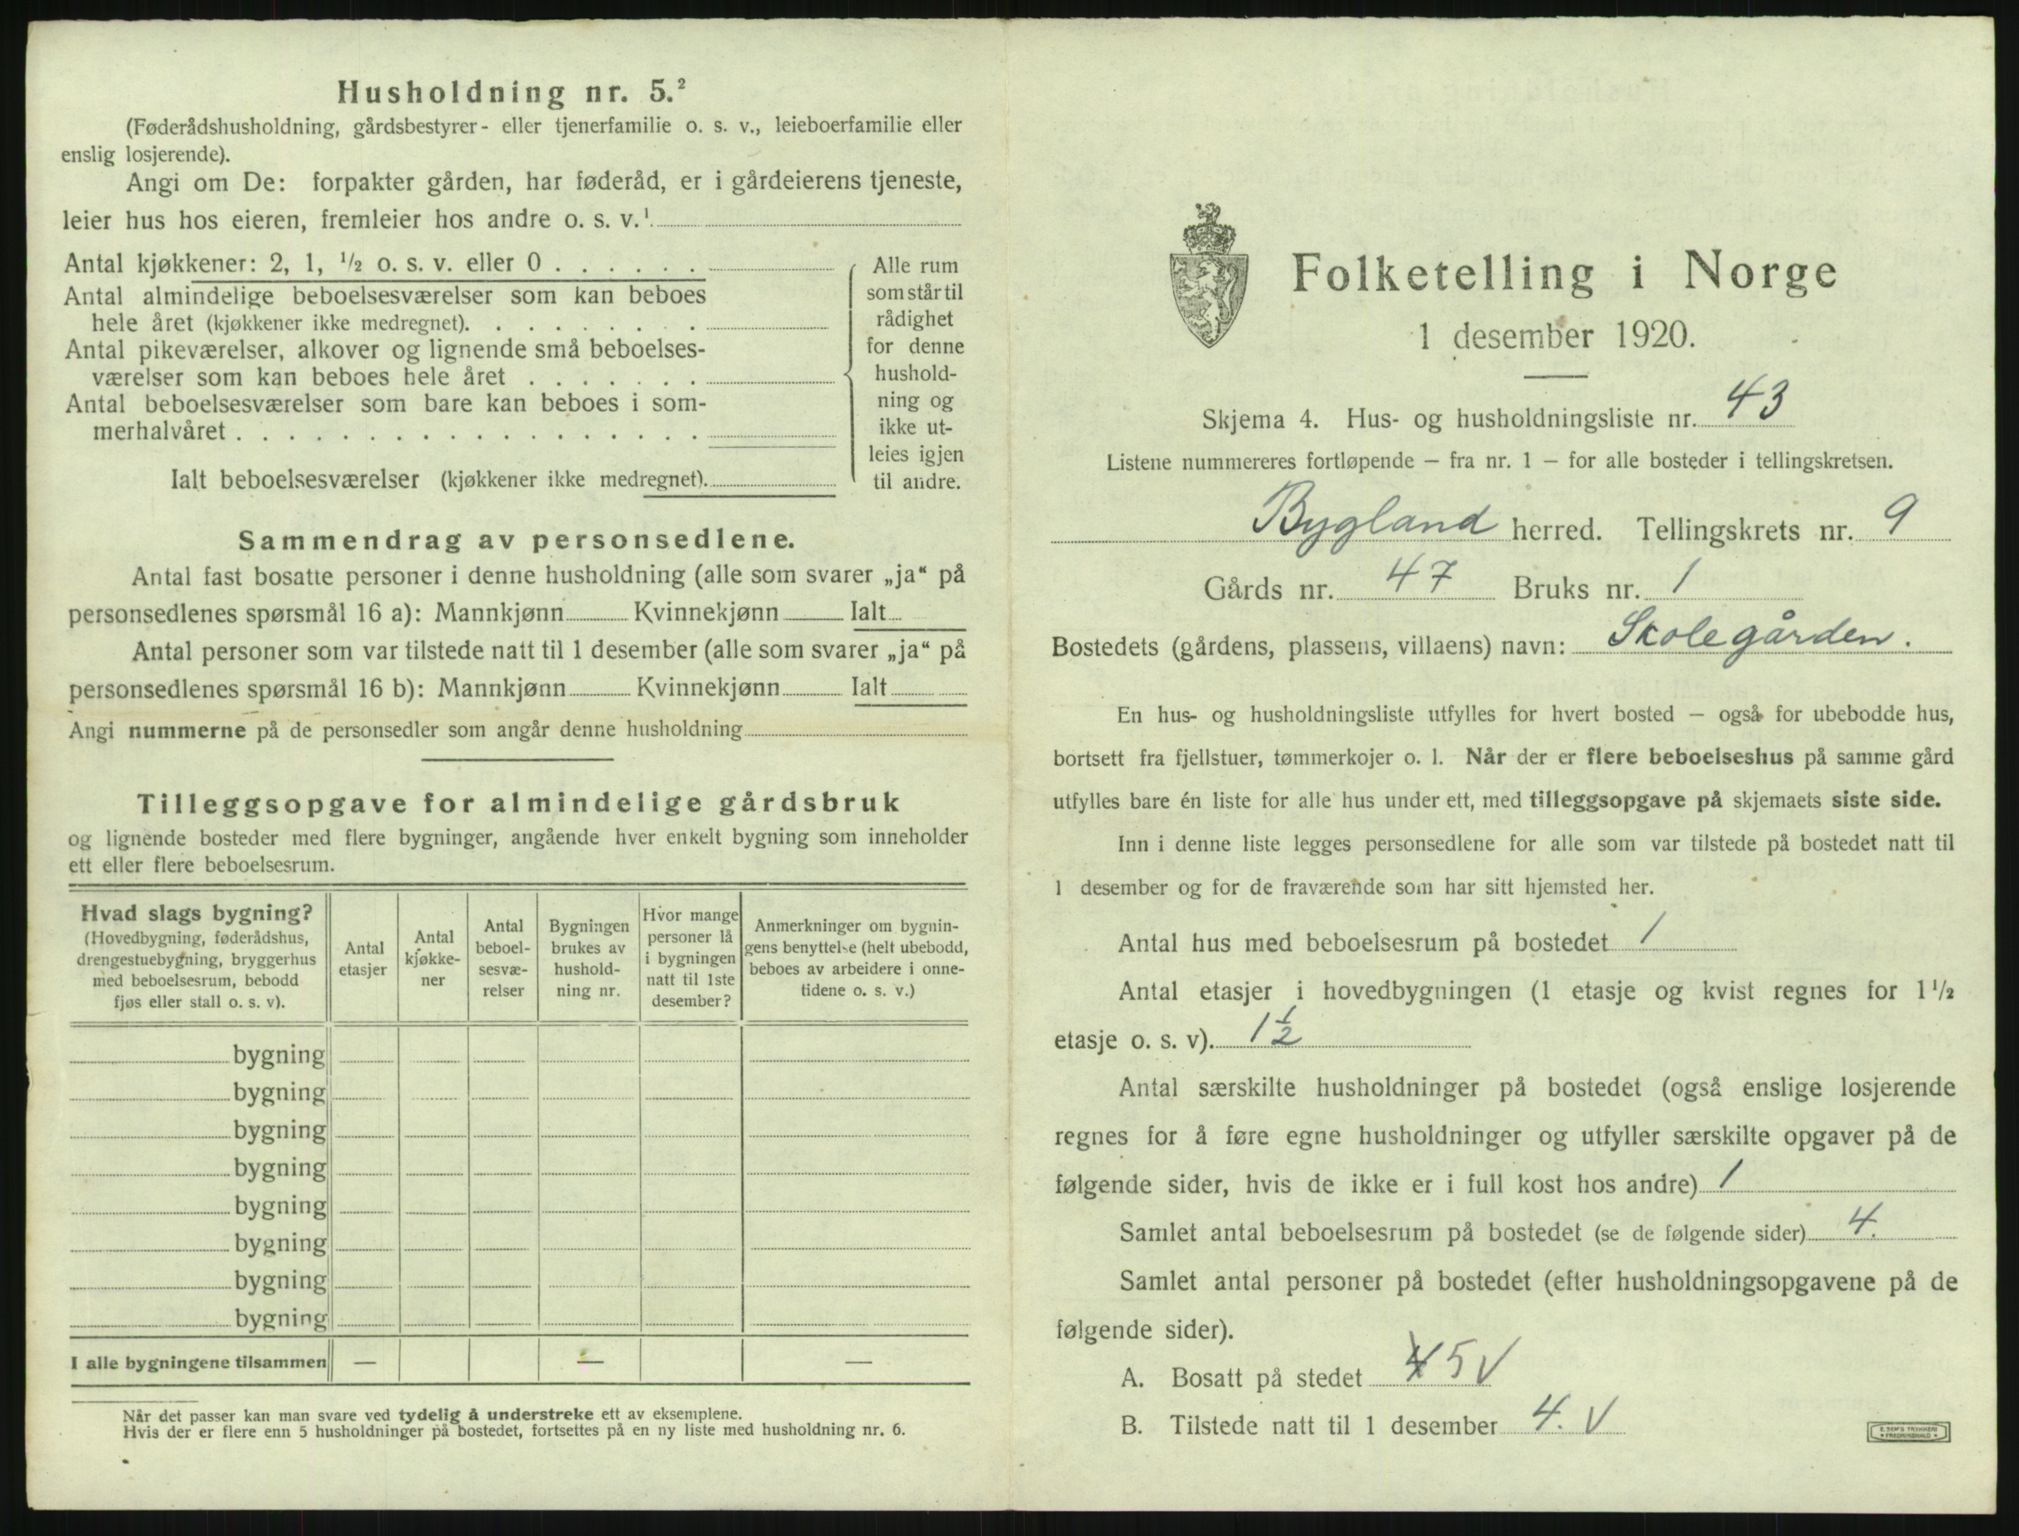 Husholdning nr. 5.²
(Føderådshusholdning, gårdsbestyrer- eller tjenerfamilie o. s. v., leieboerfamilie eller
enslig losjerende).
Angi om De: forpakter gården, har føderåd, er i gårdeierens tjeneste,
leier hus hos eieren, fremleier hos andre o. s. v.¹
Antal kjøkkener: 2, 1, ½ o. s. v. eller 0 . . . . . .
Antal almindelige beboelsesværelser som kan beboes
hele året (kjøkkener ikke medregnet). . . . . . . . .
Antal pikeværelser, alkover og lignende små beboelses-
værelser som kan beboes hele året . . . . . . .
Antal beboelsesværelser som bare kan beboes i som-
merhalvåret . . . . . . . . . . . . . . . . . .
Ialt beboelsesværelser (kjøkkener ikke medregnet).
Alle rum
som står til
rådighet
for denne
hushold-
ning og
ikke ut-
leies igjen
til andre.
Sammendrag av personsedlene.
Antal fast bosatte personer i denne husholdning (alle som svarer „ja“ på
personsedlenes spørsmål 16 a): Mannkjønn Kvinnekjønn Ialt
Antal personer som var tilstede natt til 1 desember (alle som svarer „ja“ på
personsedlenes spørsmål 16 b): Mannkjønn Kvinnekjønn Ialt
Angi nummerne på de personsedler som angår denne husholdning
Tilleggsopgave for almindelige gårdsbruk
og lignende bosteder med flere bygninger, angående hver enkelt bygning som inneholder
ett eller flere beboelsesrum.
Hvad slags bygning?
(Hovedbygning, føderådshus,
drengestuebygning, bryggerhus
med beboelsesrum, bebodd
fjøs eller stall o. s. v).
Antal
etasjer
Antal
kjøkke-
ner
Antal
beboel-
sesvæ-
relser
Bygningen
brukes av
hushold-
ning nr.
Hvor mange
personer lå
i bygningen
natt til 1ste
desember?
Anmerkninger om bygnin-
gens benyttelse (helt ubebodd,
beboes av arbeidere i onne-
tidene o. s. v.)
bygning
bygning
bygning
bygning
bygning
bygning
bygning
bygning
I alle bygningene tilsammen — — —
Når det passer kan man svare ved tydelig å understreke ett av eksemplene.
Hvis der er flere enn 5 husholdninger på bostedet, fortsettes på en ny liste med husholdning nr. 6.
Folketelling i Norge
1 desember 1920.
Skjema 4. Hus- og husholdningsliste nr. 43
Listene nummereres fortløpende – fra nr. 1 – for alle bosteder i tellingskretsen.
Bygland herred. Tellingskrets nr. 9
Gårds nr. 47 Bruks nr. 1
Bostedets (gårdens, plassens, villaens) navn: Skolegården.
En hus- og husholdningsliste utfylles for hvert bosted – også for ubebodde hus,
bortsett fra fjellstuer, tømmerkojer o. l. Når der er flere beboelseshus på samme gård
utfylles bare én liste for alle hus under ett, med tilleggsopgave på skjemaets siste side.
Inn i denne liste legges personsedlene for alle som var tilstede på bostedet natt til
1 desember og for de fraværende som har sitt hjemsted her.
Antal hus med beboelsesrum på bostedet 1
Antal etasjer i hovedbygningen (1 etasje og kvist regnes for 1½
etasje o. s. v). 1½
Antal særskilte husholdninger på bostedet (også enslige losjerende
regnes for å føre egne husholdninger og utfyller særskilte opgaver på de
følgende sider, hvis de ikke er i full kost hos andre) 1
Samlet antal beboelsesrum på bostedet (se de følgende sider) 4.
Samlet antal personer på bostedet (efter husholdningsopgavene på de
følgende sider).
A. Bosatt på stedet 4 5 V
B. Tilstede natt til 1 desember 4. V
E. SEM'S TRYKKERI
FREDRIKSHALD